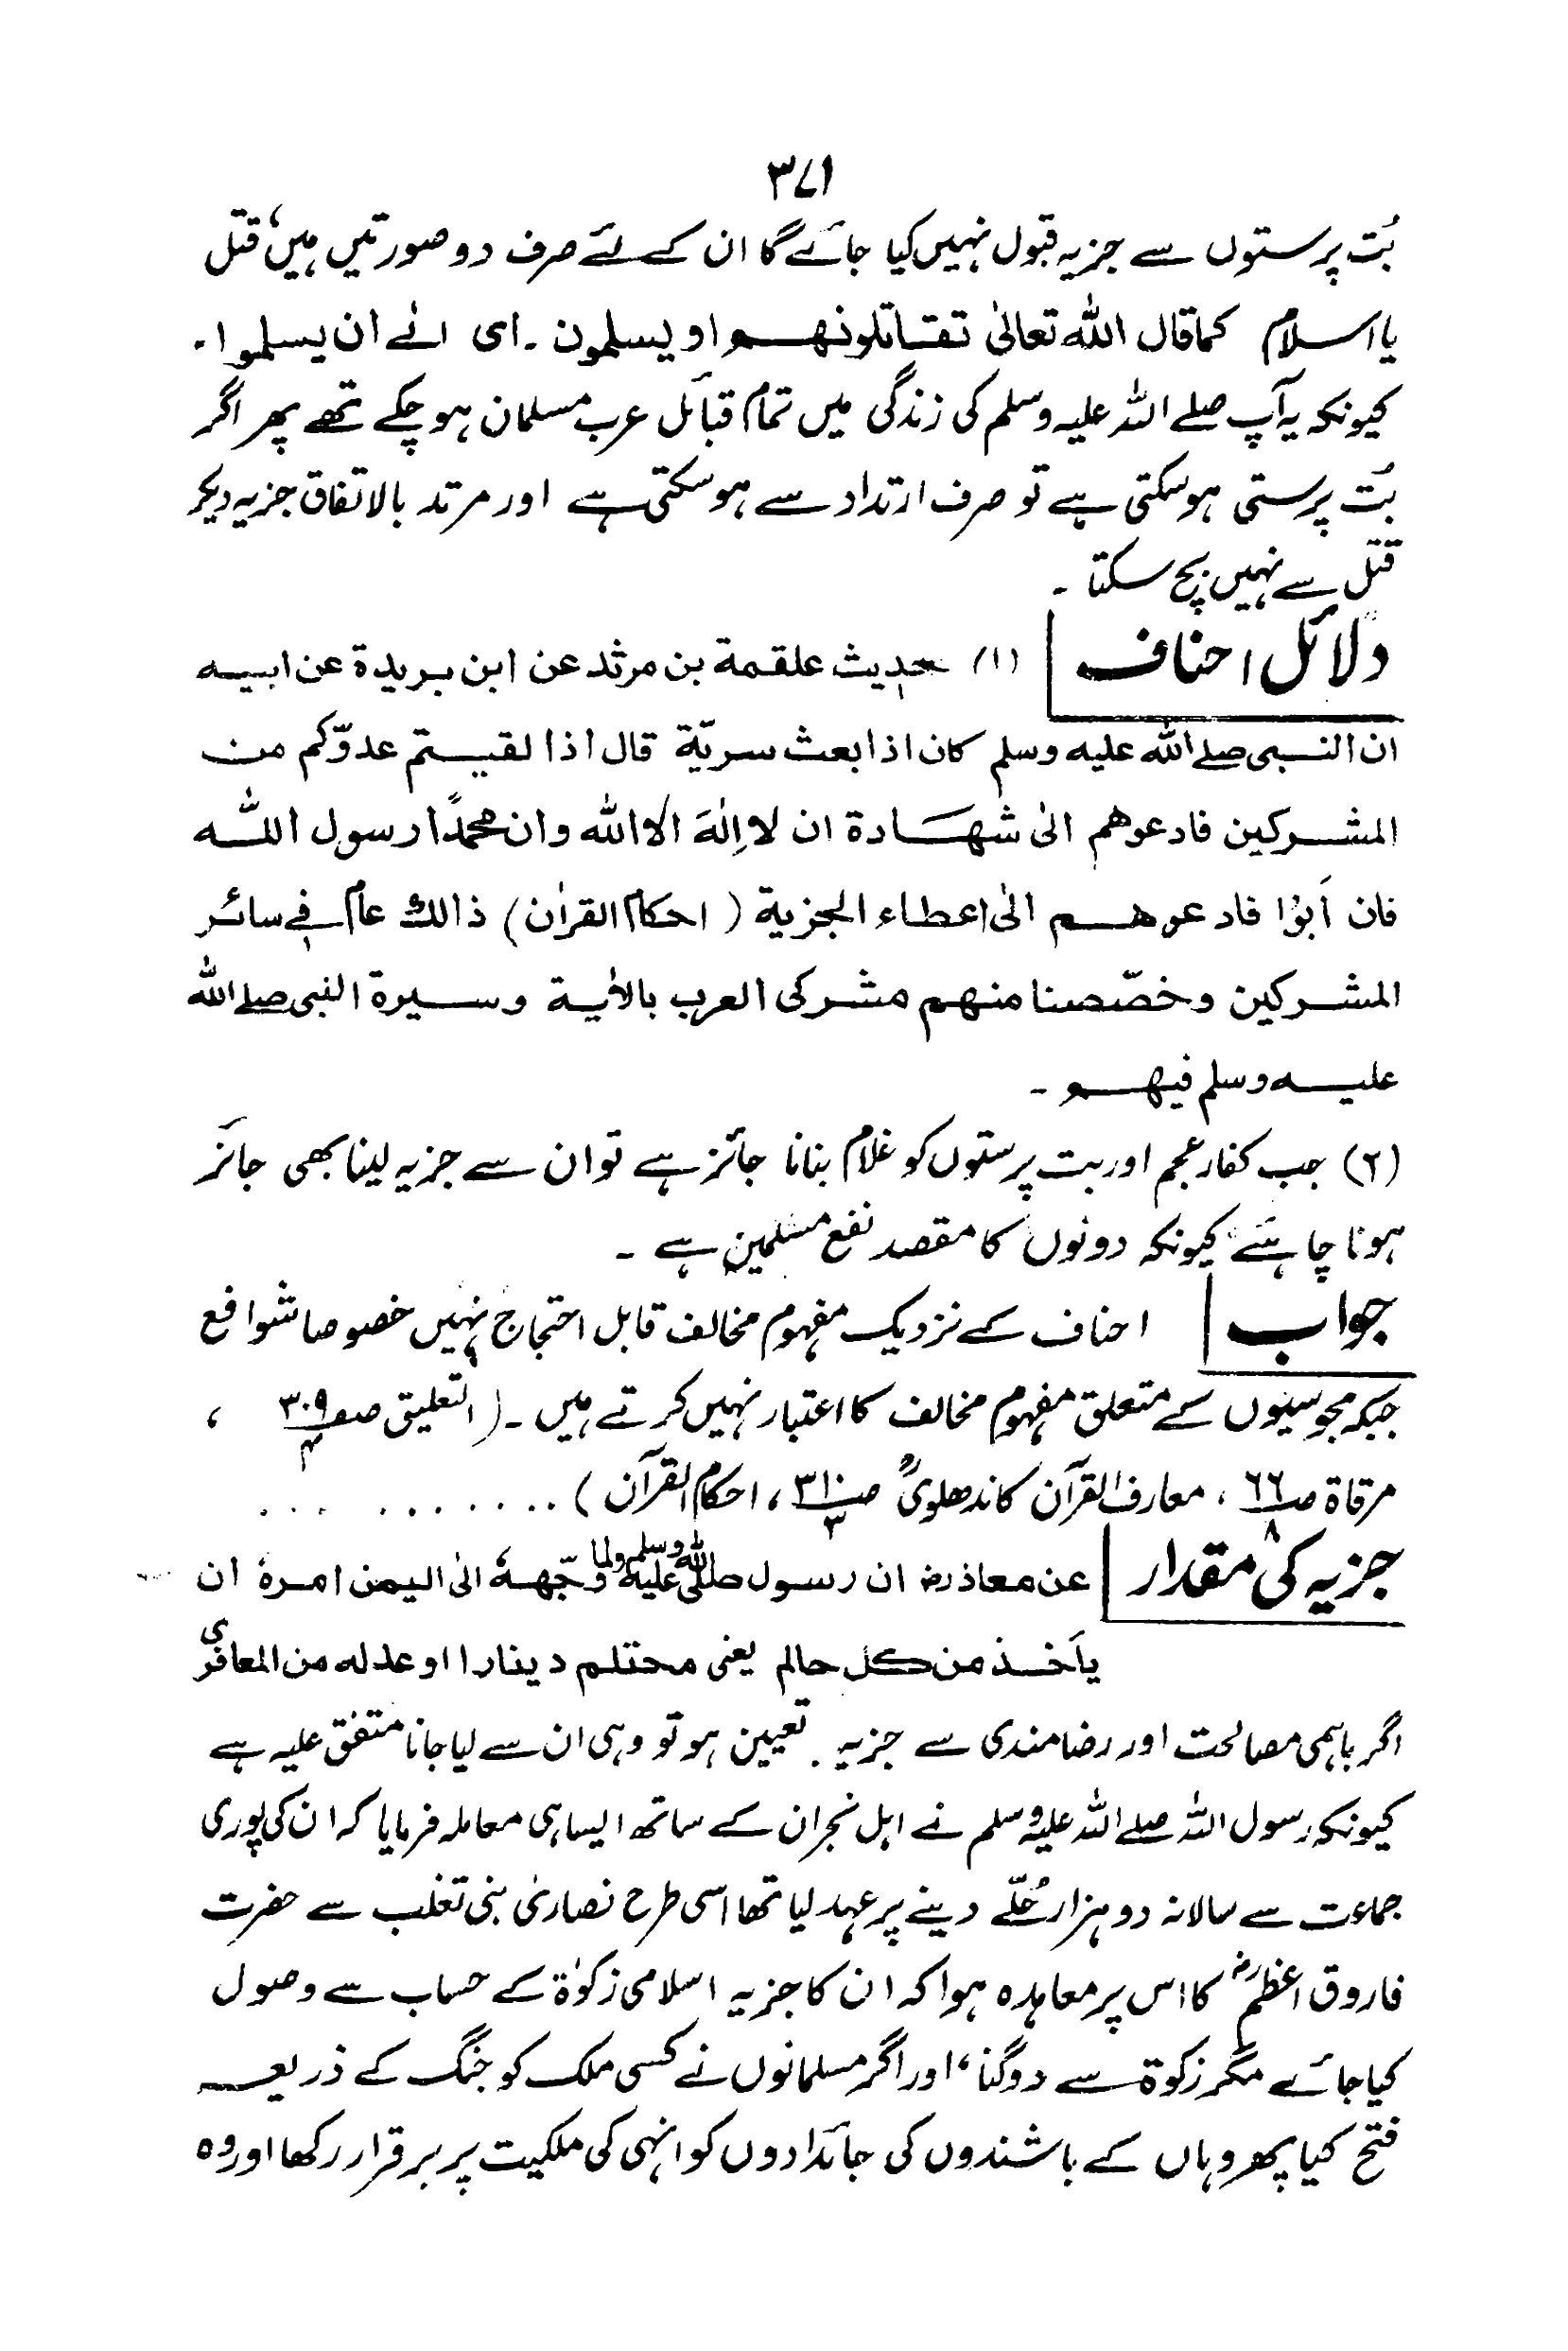 ۳۷۱
بُت پرستوں سے جزیہ قبول نہیں کیا جائے گا ان کے لئے صرف دو صورتیں ہیں، قتل
یا اسلام کما قال اللہ تعالیٰ تقاتلونهم او یسلمون ۔ ای الے ان یسلموا ۔
کیونکہ یہ آپ صلے اللہ علیہ وسلم کی زندگی میں تمام قبائل عرب مسلمان ہو چکے تھے پھر اگر
بُت پرستی ہو سکتی ہے تو صرف ارتداد سے ہو سکتی ہے اور مرتد بالاتفاق جزیہ دیکر
قتل سے نہیں بچ سکتا ۔
دلائل احناف (۱) حدیث علقمة بن مرثد عن ابن بریدة عن ابیه
ان النبی صلے اللہ علیہ وسلم کان اذا بعث سریّة قال اذا لقیتم عدوّکم من
المشرکین فادعوهم الیٰ شهادة ان لا اِلٰهَ الا الله وان محمدًا رسول الله
فان اَبَوْا فادعوهم الیٰ اعطاء الجزیة (احکام القرآن) ذالك عام فے سائر
المشرکین وخصّصنا منهم مشرکی العرب بالاٰیة وسیرة النبی صلے الله
علیه وسلم فیهم ۔
(۲) جب کفار عجم اور بت پرستوں کو غلام بنانا جائز ہے تو ان سے جزیہ لینا بھی جائز
ہونا چاہئے کیونکہ دونوں کا مقصد نفع مسلمین ہے ۔
جواب احناف کے نزدیک مفہوم مخالف قابل احتجاج نہیں خصوصا شوافع
جبکہ مجوسیوں کے متعلق مفہوم مخالف کا اعتبار نہیں کرتے ہیں ۔ (التعلیق صـ۳۰۹/۴ ،
مرقاة صـ۶۶/۸ ، معارف القرآن کاندھلویؒ صـ۳۱۰/۳ ، احکام القرآن) ...........
جزیہ کی مقدار عن معاذ رض ان رسول صلی اللہ علیہ وسلم لما وجّهہٗ الیٰ الیمن امرہٗ ان
یأخذ من کل حالم یعنی محتلم دینارا او عدله من المعافری
اگر باہمی مصالحت اور رضامندی سے جزیہ تعیین ہو تو وہی ان سے لیا جانا متفق علیہ ہے
کیونکہ رسول اللہ صلے اللہ علیہ وسلم نے اہل نجران کے ساتھ ایسا ہی معاملہ فرمایا کہ ان کی پوری
جماعت سے سالانہ دو ہزار حُلّے دینے پر عہد لیا تھا اسی طرح نصاریٰ بنی تغلب سے حضرت
فاروق اعظمؓ کا اس پر معاہدہ ہوا کہ ان کا جزیہ اسلامی زکوٰة کے حساب سے وصول
کیا جائے مگر زکوة سے دوگنا، اور اگر مسلمانوں نے کسی ملک کو جنگ کے ذریعہ
فتح کیا پھر وہاں کے باشندوں کی جائدادوں کو انہی کی ملکیت پر برقرار رکھا اور وہ